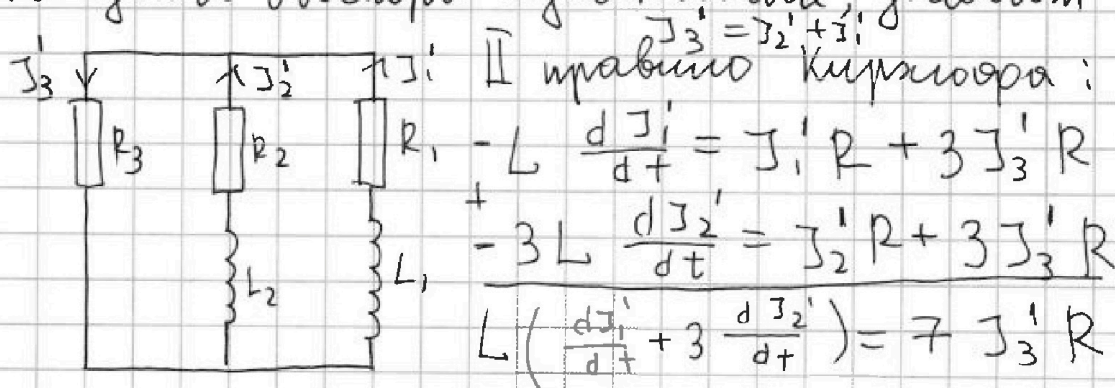 J₃' = J₂' + J₁'
II правило Кирхгофа :
J₃' J₂' J₁'
R₃ R₂ R₁
L₂ L₁
- L dJ₁'/dt = J₁' R + 3 J₃' R
+
- 3 L dJ₂'/dt = J₂' R + 3 J₃' R
L ( dJ₁'/dt + 3 dJ₂'/dt ) = 7 J₃' R